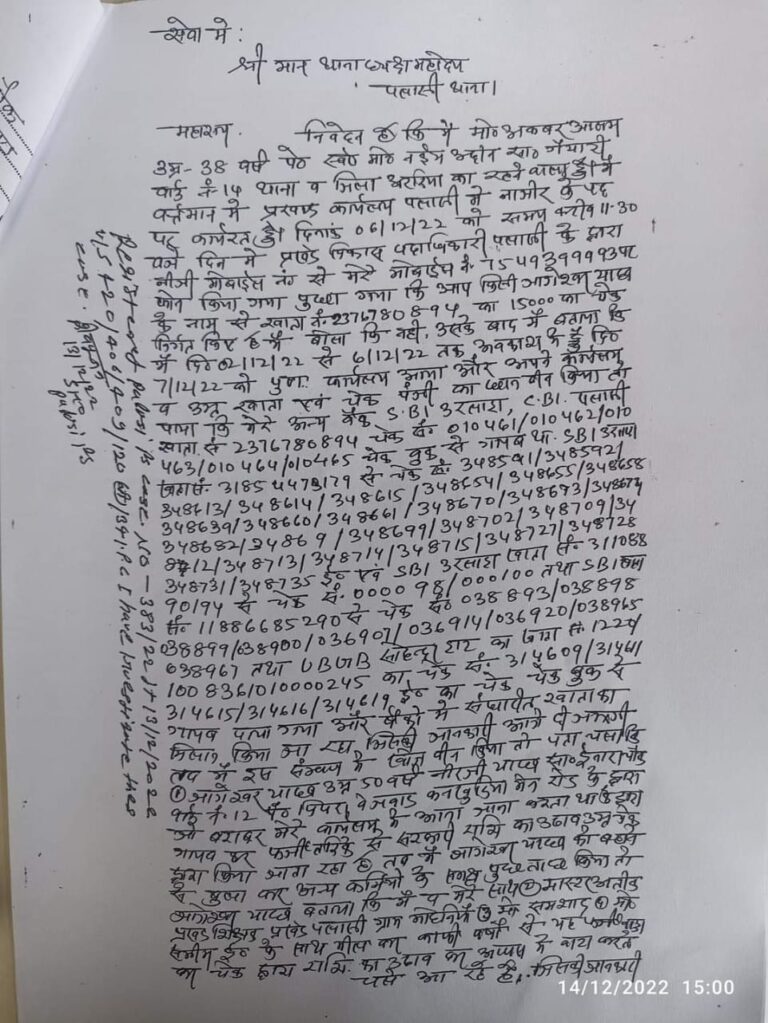 सेवा मे :
श्री मान थानाध्यक्ष महोदय
पलासी थाना।
महाशय, निवेदन है कि मै मो० अकबर आलम
उम्र- 38 वर्ष पे० स्व० मो० नईम उद्दीन सा० गैयारी
वार्ड नं- 14 थाना व जिला अररिया का रहने वाला हूँ। मै
वर्तमान मे प्रखण्ड कार्यालय पलासी मे नाजीर के पद
पर कार्यरत हूँ। दिनांक 06/12/22 को समय करीब 11.30
बजे दिन मे प्रखंड विकास पदाधिकारी पलासी के द्वारा
नीजी मोबाईल नं० से मेरे मोबाईल नं- 7549399993 पर
फोन किया गया पुछा गया कि आप किसी जागेश्वर यादव
के नाम से खाता नं. 2376780894 का 15000 का चेक
निर्गत किए है मै बोला कि नही, उसके बाद मै बताया कि
मै दि० 02/12/22 से 6/12/22 तक अवकाश मे हूँ दि०
7/12/22 को पुनः कार्यालय आया और अपने कार्यालय
व अन्य खाता एवं चेक पंजी का छान बीन किया तो
पाया कि मेरे अन्य बैंक S.B.I उरलाहा, C.B.I. पलासी
खाता सं 2376780894 चेक सं० 010461/010462/010
463/010464/010465 चेक बुक से गायब था. SBI उरलाहा
खाता सं० 31854473179 से चेक सं० 348591/348592/
348613/348614/348615/348654/348655/348658
348639/348660/348661/348670/348673/348674
348682/34869/348699/348702/348709/34
8712/348713/348714/348715/348727/348728
348731/348735 ई० एवं SBI उरलाहा खाता सं० 311088
90194 से चेक सं. 000098/000100 तथा SBI खाता
सं० 11886685290 से चेक सं० 038893/038898
038899/038900/036907/036914/036920/038965
038967 तथा UBGB हाट का खाता सं. 1224
1008361010000245 का चेक सं. 314609/31461
314615/314616/314619 ई० का चेक चेक बुक से
गायब पाया गया और बैंको मे संधारीत खाता का
मिलान किया जा रहा जिसकी जानकारी आगे दी जाएगी
तब मै इस संबंध मे छान बीन किया तो पता चला कि
① जागेश्वर यादव उम्र 50 वर्ष नीरजी यादव सा०
वार्ड नं. 12 के द्वारा
जो बराबर मेरे कार्यालय मे आना जाना करता था
गायब कर फर्जी तरिके से सरकारी राशि का उठाव
द्वारा किया जाता रहा है तब मै जागेश्वर यादव को
से बुला कर अन्य कर्मियों के समक्ष पुछताछ किया तो
जागेश्वर यादव बताया कि मै व मेरे साथ ② मास्टर
प्रखंड पलासी ग्राम ③ मो० समशाद ④ मो०
ई० के साथ मील कर काफी वर्षो से यह
का चेक द्वारा राशि का उठाव कर आपस मे बाटा करते
चले आ रहे है। जिसकी जानकारी
Registered palasi ps case. NO – 383/22 dt 13/12/2022
u/s 420/406/409/120 (B)/34 I.P.C I have investigate thes
case.
13/12/22
SHO
palasi, ps
14/12/2022 15:00